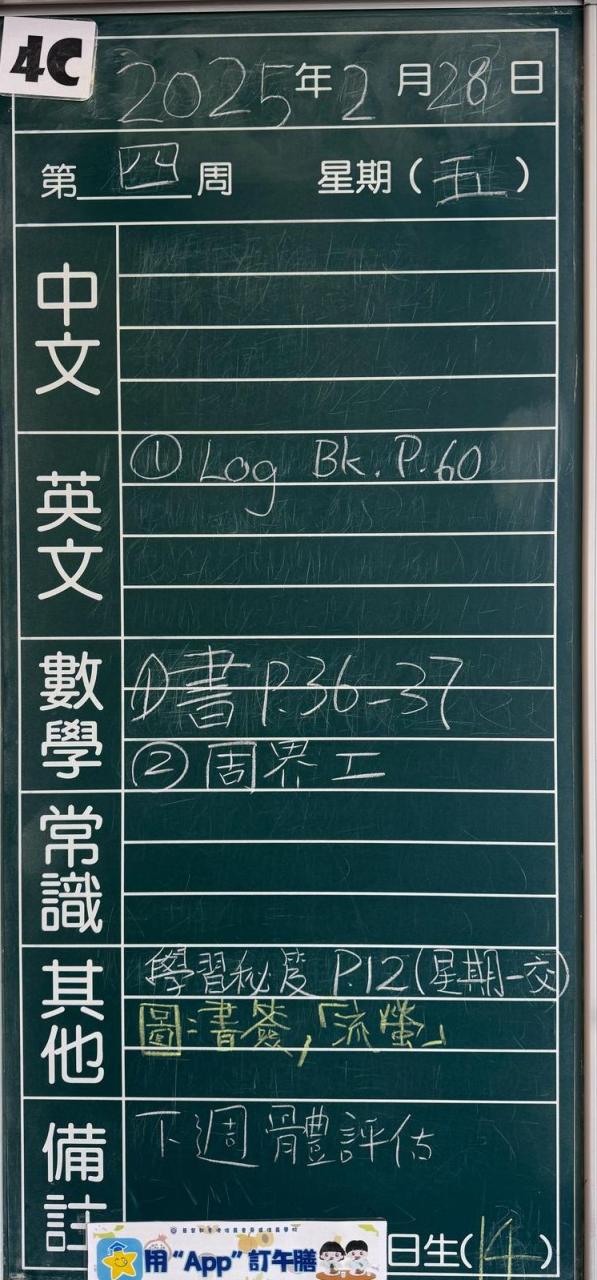 4C
2025年2月28日
第四周 星期(五)
中文
英文
① Log Bk. P.60
數學
①書 P.36-37
② 周界工
常識
其他
學習秘笈 P.12(星期一交)
圖:書簽,「流螢」
備註
下週骨豊評估
用“App”訂午膳
日生(14)